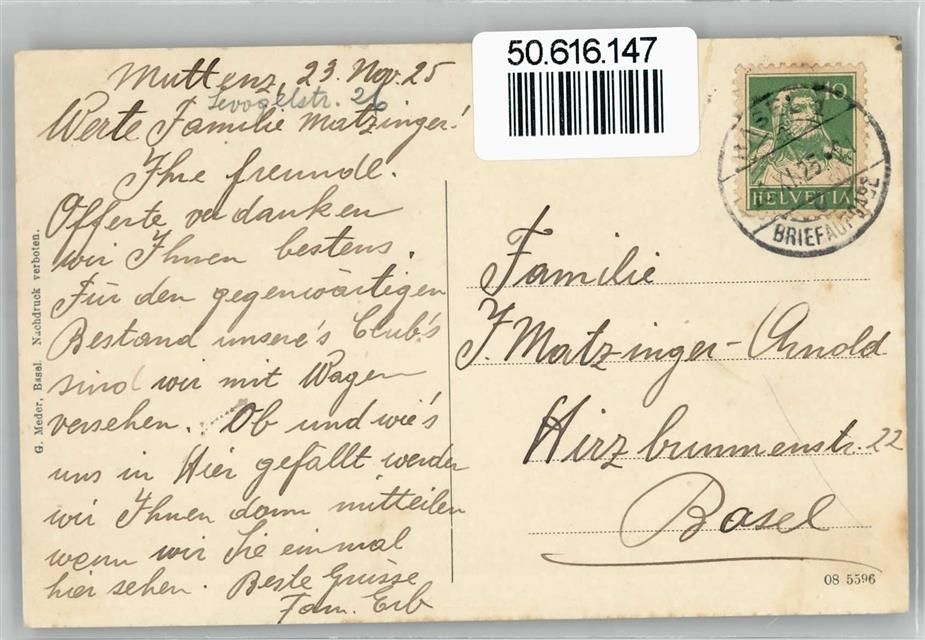 50.616.147
Muttenz, 23. Nov. 25
Sevogelstr. 26
Werte Familie Matzinger!
Ihre freundl.
Offerte verdanken
wir Ihnen bestens.
Für den gegenwärtigen
Bestand unsere's Club's
sind wir mit Wagen
versehen. Ob und wie's
uns in Hier gefällt werden
wir Ihnen dann mitteilen
wenn wir Sie einmal
hier sehen. Beste Grüsse
Fam. Erb
G. Meder, Basel. Nachdruck verboten.
10
HELVETIA
BASEL
BRIEFAUFGABE
Familie
J. Matzinger-Arnold
Hirzbrunnenstr. 22
Basel
08 5596